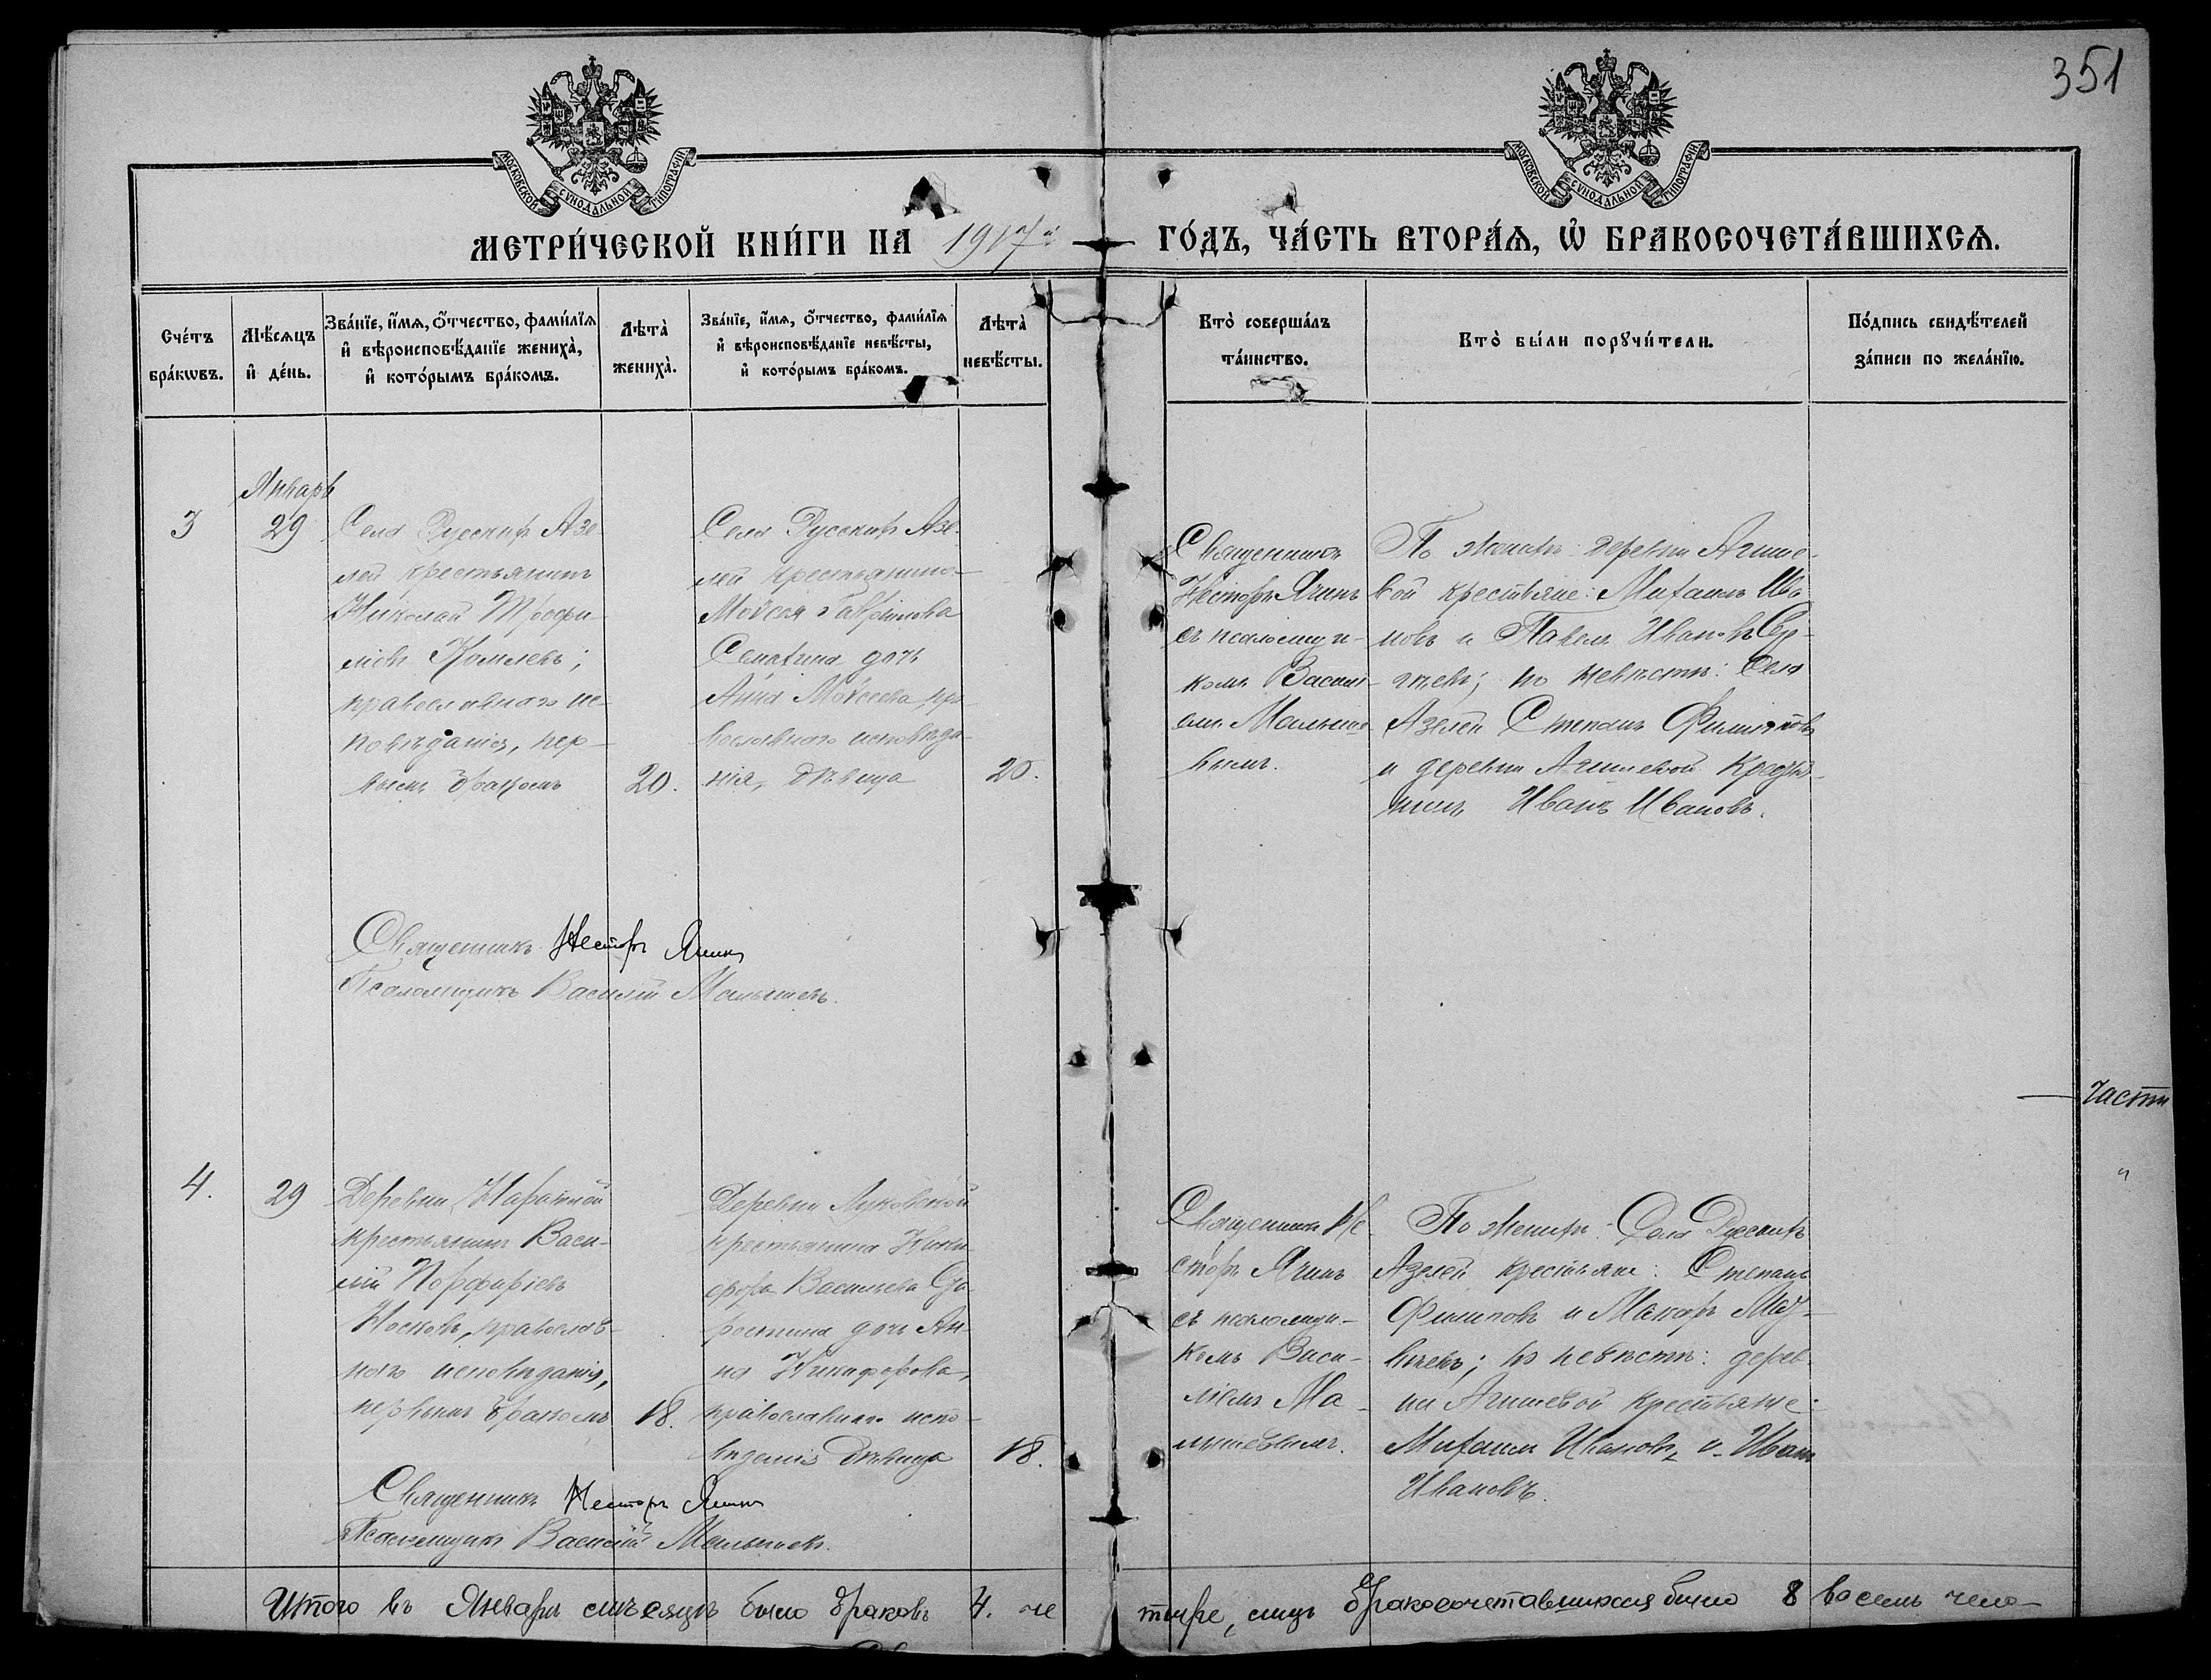 351
МОСКОВСКОЙ СУНОДАЛЬНОЙ ТИПОГРАФІИ
МОСКОВСКОЙ СУНОДАЛЬНОЙ ТИПОГРАФІИ
МЕТРИ́ЧЕСКОЙ КНИ́ГИ НА 1917й ГО́ДЪ, ЧА́СТЬ ВТОРА́Ѧ, Ѿ БРАКОСОЧЕТА́ВШИХСѦ.
Сче́тъ
бра́кѡвъ.
Мѣ́сѧцъ
и҆ де́нь.
Зва́нїе, и҆́мѧ, ѻ҆́тчество, фами́лїѧ
и҆ вѣроисповѣ́данїе жениха̀,
и҆ кото́рымъ бра́комъ.
Лѣта̀
жениха̀.
Зва́нїе, и҆́мѧ, ѻ҆́тчество, фами́лїѧ
и҆ вѣроисповѣ́данїе невѣ́сты,
и҆ кото́рымъ бра́комъ.
Лѣта̀
невѣ́сты.
Кто̀ соверша́лъ
та́инство.
Кто̀ бы́ли порꙋчи́тели.
По́дпись свидѣ́телей
за́писи по жела́нїю.
Январь
3
29
Села Русскихъ Азе-
лей крестьянинъ
Николай Трофи-
мовъ Комлевъ;
православнаго ис-
повѣданія, пер-
вымъ бракомъ
20.
Села Русскихъ Азе-
лей крестьянина
Моѵсея Гаврилова
дочь
Анна Моѵсеева, пра-
вославнаго исповѣда-
нія, дѣвица
20.
Священникъ
Несторъ Ячинъ
съ псаломщи-
комъ Васили-
емъ Малыше-
вымъ.
По женихѣ: деревни Агише-
вой крестьяне: Михаилъ Ива
новъ и Павелъ Ивановъ
по невѣстѣ: Села
Азелей Степанъ Филиповъ
и деревни Агишевой крестья-
нинъ Иванъ Ивановъ.
Священникъ Несторъ Ячинъ
Псаломщикъ Василій Малышевъ.
части
"
4.
29
Деревни
крестьянинъ Васи-
лій Порфирьевъ
Носковъ, православ-
наго исповѣданія,
первымъ бракомъ
18.
Деревни Луковской
крестьянина Ники-
фора Васильева
дочь Ан-
на Никифорова,
православнаго испо-
вѣданія дѣвица
18.
Священникъ Не-
сторъ Ячинъ
съ псаломщи-
комъ Васи-
ліемъ Ма-
лышевымъ.
По женихѣ: Села Русскихъ
Азелей крестьяне: Степанъ
Филиповъ и Макаръ
по невѣстѣ: дерев-
ни Агишевой крестьяне:
Михаилъ Ивановъ и Иванъ
Ивановъ.
Священникъ Несторъ Ячинъ
Псаломщикъ Василій Малышевъ.
Итого въ Январѣ мѣсяцѣ было браковъ 4. че тыре, лицъ бракосочетавшихся было 8 восемь чело-